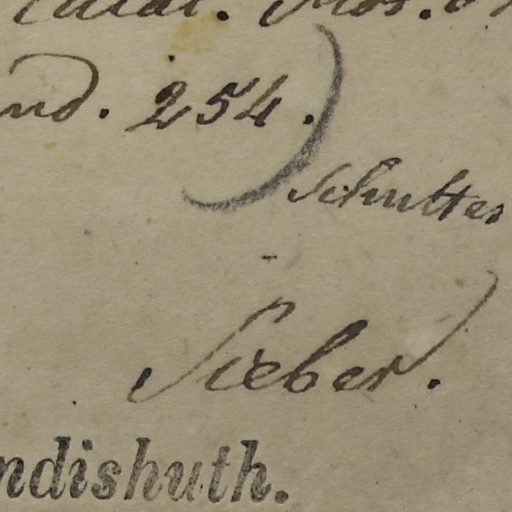 Catal. Mos.
nd. 254.)
Schultes
Sieber.
ndishuth.